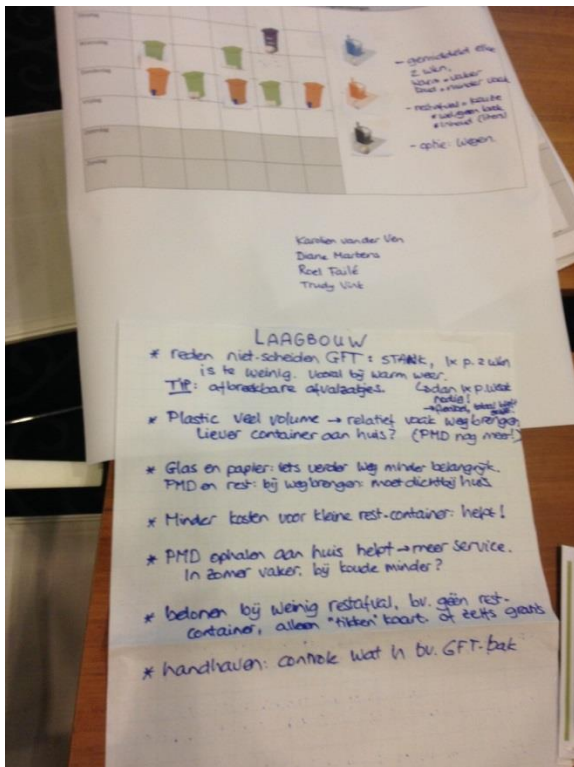 Dinsdag
Woensdag
Donderdag
Vrijdag
Zaterdag
Zondag
- gemiddeld elke
2 wkn,
warm = vaker
koud = minder vaak
- restafval = keuze
* wel/geen bak
* inhoud (liters)
- optie: wegen.
Karolien van der Ven
Diane Martens
Roel Failé
Trudy Vink
LAAGBOUW
* reden niet-scheiden GFT: STANK, 1x p. 2 wkn
is te weinig. Vooral bij warm weer.
TIP: afbreekbare afvalzakjes. ↳ dan 1x p. week
nodig!
→ flexibel,
* Plastic veel volume → relatief vaak wegbrengen
Liever container aan huis? (PMD nog meer!)
* Glas en papier: iets verder weg minder belangrijk.
PMD en rest: bij wegbrengen: moet dichtbij huis
* Minder kosten voor kleine rest-container: helpt!
* PMD ophalen aan huis helpt → meer service.
In zomer vaker, bij koude minder?
* belonen bij weinig restafval, bv. géén rest-
container, alleen "tikken" kaart. of zelfs gratis
* handhaven: controle wat in bv. GFT-bak